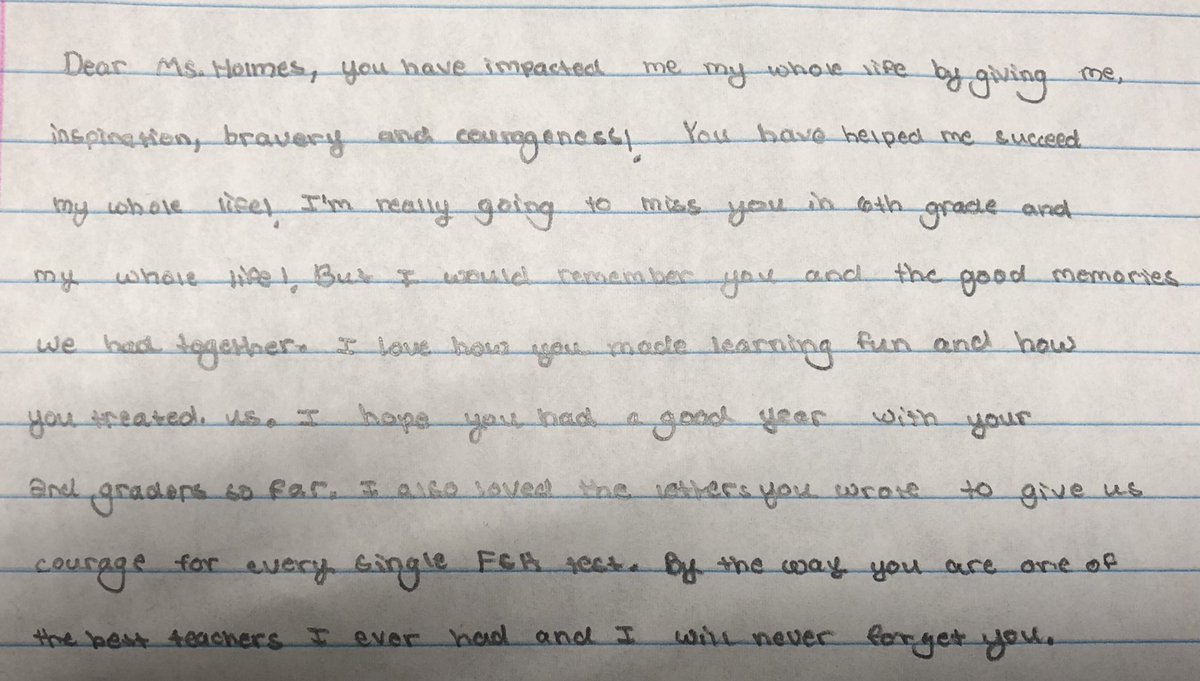 Dear Ms. Holmes, you have impacted me my whole life by giving me,
inspiration, bravery and courageness! You have helped me succeed
my whole life! I'm really going to miss you in 6th grade and
my whole life! But I would remember you and the good memories
we had together. I love how you made learning fun and how
you treated. us. I hope you had a good year with your
2nd graders so far. I also loved the letters you wrote to give us
courage for every single FSA test. By the way you are one of
the best teachers I ever had and I will never forget you.